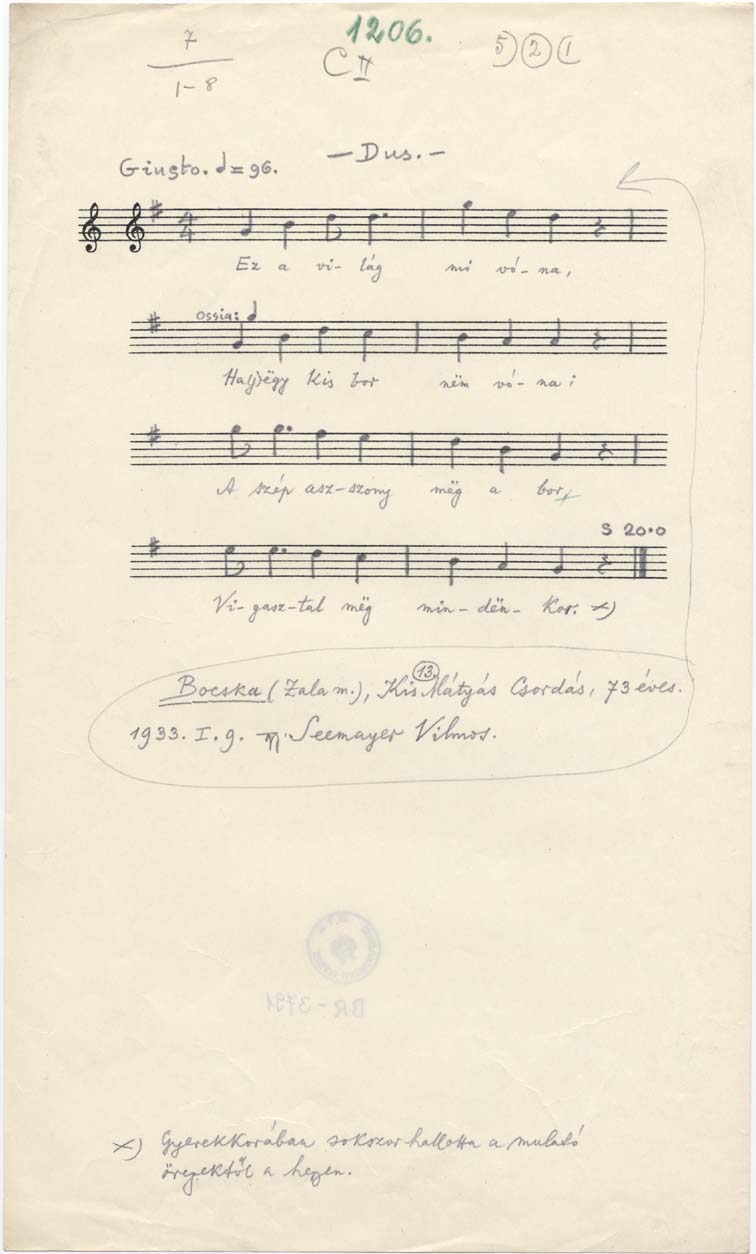 1206.
7
1-8
C II
5 2 1
Giusto. ♩=96.
-Dus.-
4
4
Ez a vi- lág mi vó- na,
Ossia:
Ha(j) ëgy kis bor nëm vó- na:
A szép asz-szony mëg a bor,
S 20.0
Vi- gasz-tal mëg min- dën- kor. x)
13.
Bocska (Zala m.), Kis Mátyás Csordás, 73 éves.
1933. I. 9. Seemayer Vilmos.
BR-3791
x) Gyerekkorában sokszor hallotta a mulató
öregektől a hegyen.